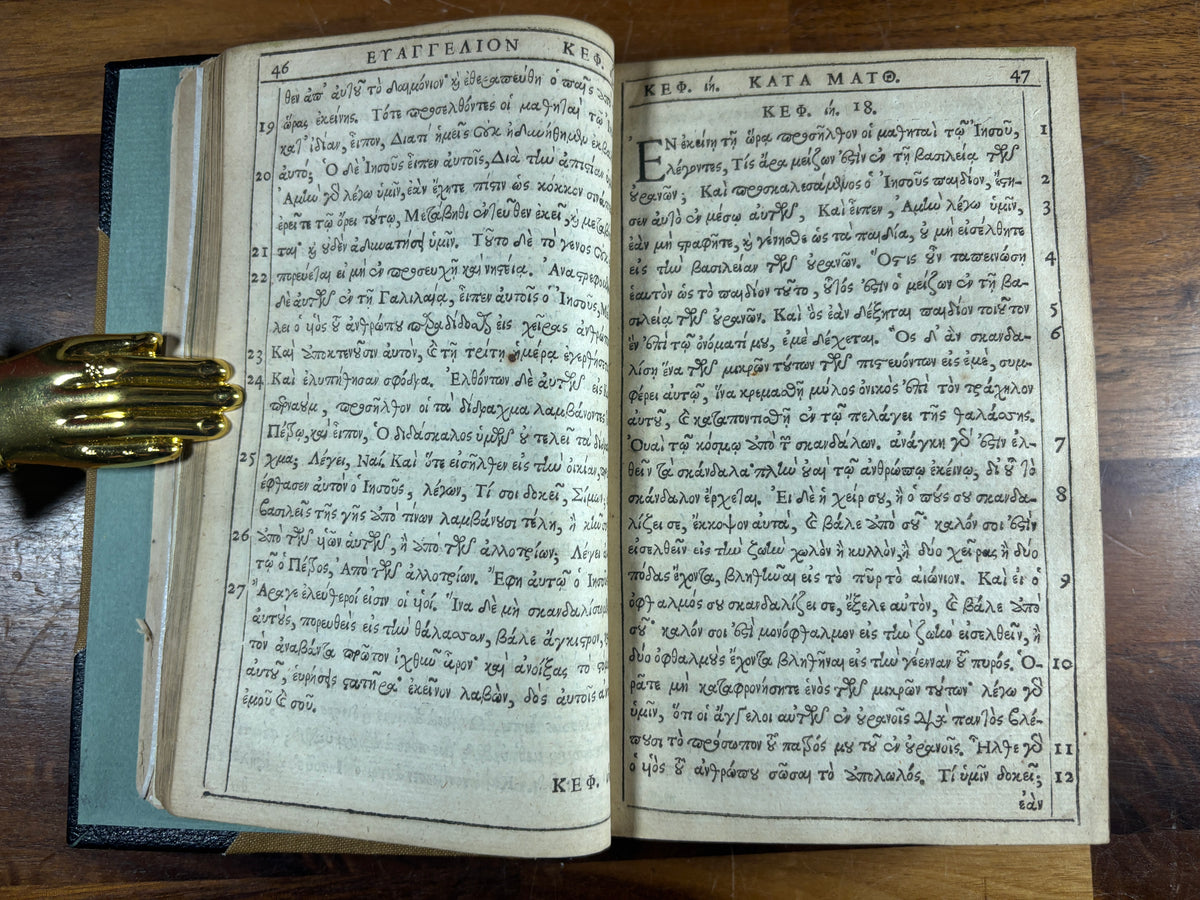 46 ΕΥΑΓΓΕΛΙΟΝ ΚΕΦ.
θεν ἀπ' αὐτοῦ τὸ δαιμόνιον· καὶ ἐθεραπεύθη ὁ παῖς ἀπὸ
19 ὥρας ἐκείνης. Τότε προσελθόντες οἱ μαθηταὶ τῷ
κατ' ἰδίαν, εἶπον, Διατί ἡμεῖς οὐκ ἠδυνήθημεν
20 αὐτό; Ὁ δὲ Ἰησοῦς εἶπεν αὐτοῖς, Διὰ τὴν ἀπιστίαν
Ἀμὴν γὰρ λέγω ὑμῖν, ἐὰν ἔχητε πίστιν ὡς κόκκον
ἐρεῖτε τῷ ὄρει τούτῳ, Μετάβηθι ἐντεῦθεν ἐκεῖ, καὶ
21 ται· καὶ οὐδὲν ἀδυνατήσει ὑμῖν. Τοῦτο δὲ τὸ γένος οὐκ
22 πορεύεται εἰ μὴ ἐν προσευχῇ καὶ νηστείᾳ.
δὲ αὐτῶν ἐν τῇ Γαλιλαίᾳ, εἶπεν αὐτοῖς ὁ Ἰησοῦς,
λει ὁ υἱὸς τοῦ ἀνθρώπου παραδίδοσθαι εἰς χεῖρας
23 Καὶ ἀποκτενοῦσιν αὐτὸν, καὶ τῇ τρίτῃ ἡμέρᾳ
24 Καὶ ἐλυπήθησαν σφόδρα. Ἐλθόντων δὲ αὐτῶν εἰς
περναοὺμ, προσῆλθον οἱ τὰ δίδραχμα λαμβάνοντες
Πέτρῳ, καὶ εἶπον, Ὁ διδάσκαλος ὑμῶν οὐ τελεῖ τὰ
25 χμα; Λέγει, Ναί. Καὶ ὅτε εἰσῆλθεν εἰς τὴν οἰκίαν,
έφθασεν αὐτὸν ὁ Ἰησοῦς, λέγων, Τί σοι δοκεῖ, Σίμων;
βασιλεῖς τῆς γῆς ἀπὸ τίνων λαμβάνουσι τέλη, ἢ
26 ἀπὸ τῶν υἱῶν αὐτῶν, ἢ ἀπὸ τῶν ἀλλοτρίων; Λέγει
τῷ ὁ Πέτρος, Ἀπὸ τῶν ἀλλοτρίων. Ἔφη αὐτῷ ὁ
27 Ἄραγε ἐλεύθεροί εἰσιν οἱ υἱοί. Ἵνα δὲ μὴ
αὐτοὺς, πορευθεὶς εἰς τὴν θάλασσαν, βάλε ἄγκιστρον,
τὸν ἀναβάντα πρῶτον ἰχθὺν ἆρον· καὶ ἀνοίξας τὸ
αὐτοῦ, εὑρήσεις στατῆρα· ἐκεῖνον λαβὼν, δὸς αὐτοῖς
ἐμοῦ καὶ σοῦ.
ΚΕΦ.
ΚΕΦ. ιή. ΚΑΤΑ ΜΑΤΘ. 47
ΚΕΦ. ιή. 18.
ΕΝ ἐκείνῃ τῇ ὥρᾳ προσῆλθον οἱ μαθηταὶ τῷ Ἰησοῦ, 1
λέγοντες, Τίς ἄρα μείζων ἐστὶν ἐν τῇ βασιλείᾳ τῶν
οὐρανῶν; Καὶ προσκαλεσάμενος ὁ Ἰησοῦς παιδίον, ἔστη- 2
σεν αὐτὸ ἐν μέσῳ αὐτῶν, Καὶ εἶπεν, Ἀμὴν λέγω ὑμῖν, 3
ἐὰν μὴ στραφῆτε, καὶ γένησθε ὡς τὰ παιδία, οὐ μὴ εἰσέλθητε
εἰς τὴν βασιλείαν τῶν οὐρανῶν. Ὅστις οὖν ταπεινώσῃ 4
ἑαυτὸν ὡς τὸ παιδίον τοῦτο, οὗτός ἐστιν ὁ μείζων ἐν τῇ βα-
σιλείᾳ τῶν οὐρανῶν. Καὶ ὃς ἐὰν δέξηται παιδίον τοιοῦτον 5
ἓν ἐπὶ τῷ ὀνόματί μου, ἐμὲ δέχεται. Ὃς δ' ἂν σκανδα- 6
λίσῃ ἕνα τῶν μικρῶν τούτων τῶν πιστευόντων εἰς ἐμὲ, συμ-
φέρει αὐτῷ, ἵνα κρεμασθῇ μύλος ὀνικὸς ἐπὶ τὸν τράχηλον
αὐτοῦ, καὶ καταποντισθῇ ἐν τῷ πελάγει τῆς θαλάσσης.
Οὐαὶ τῷ κόσμῳ ἀπὸ τῶν σκανδάλων. ἀνάγκη γάρ ἐστιν ἐλ- 7
θεῖν τὰ σκάνδαλα· πλὴν οὐαὶ τῷ ἀνθρώπῳ ἐκείνῳ, δι' οὗ τὸ
σκάνδαλον ἔρχεται. Εἰ δὲ ἡ χείρ σου, ἢ ὁ πούς σου σκανδα- 8
λίζει σε, ἔκκοψον αὐτὰ, καὶ βάλε ἀπὸ σοῦ· καλόν σοι ἐστὶν
εἰσελθεῖν εἰς τὴν ζωὴν χωλὸν ἢ κυλλὸν, ἢ δύο χεῖρας ἢ δύο
πόδας ἔχοντα, βληθῆναι εἰς τὸ πῦρ τὸ αἰώνιον. Καὶ εἰ ὁ 9
ὀφθαλμός σου σκανδαλίζει σε, ἔξελε αὐτὸν, καὶ βάλε ἀπὸ
σοῦ· καλόν σοι ἐστὶ μονόφθαλμον εἰς τὴν ζωὴν εἰσελθεῖν, ἢ
δύο ὀφθαλμοὺς ἔχοντα βληθῆναι εἰς τὴν γέενναν τοῦ πυρός. Ὁ- 10
ρᾶτε μὴ καταφρονήσητε ἑνὸς τῶν μικρῶν τούτων· λέγω γὰρ
ὑμῖν, ὅτι οἱ ἄγγελοι αὐτῶν ἐν οὐρανοῖς διὰ παντὸς βλέ-
πουσι τὸ πρόσωπον τοῦ πατρός μου τοῦ ἐν οὐρανοῖς. Ἦλθε γὰρ 11
ὁ υἱὸς τοῦ ἀνθρώπου σῶσαι τὸ ἀπολωλός. Τί ὑμῖν δοκεῖ; 12
ἐὰν